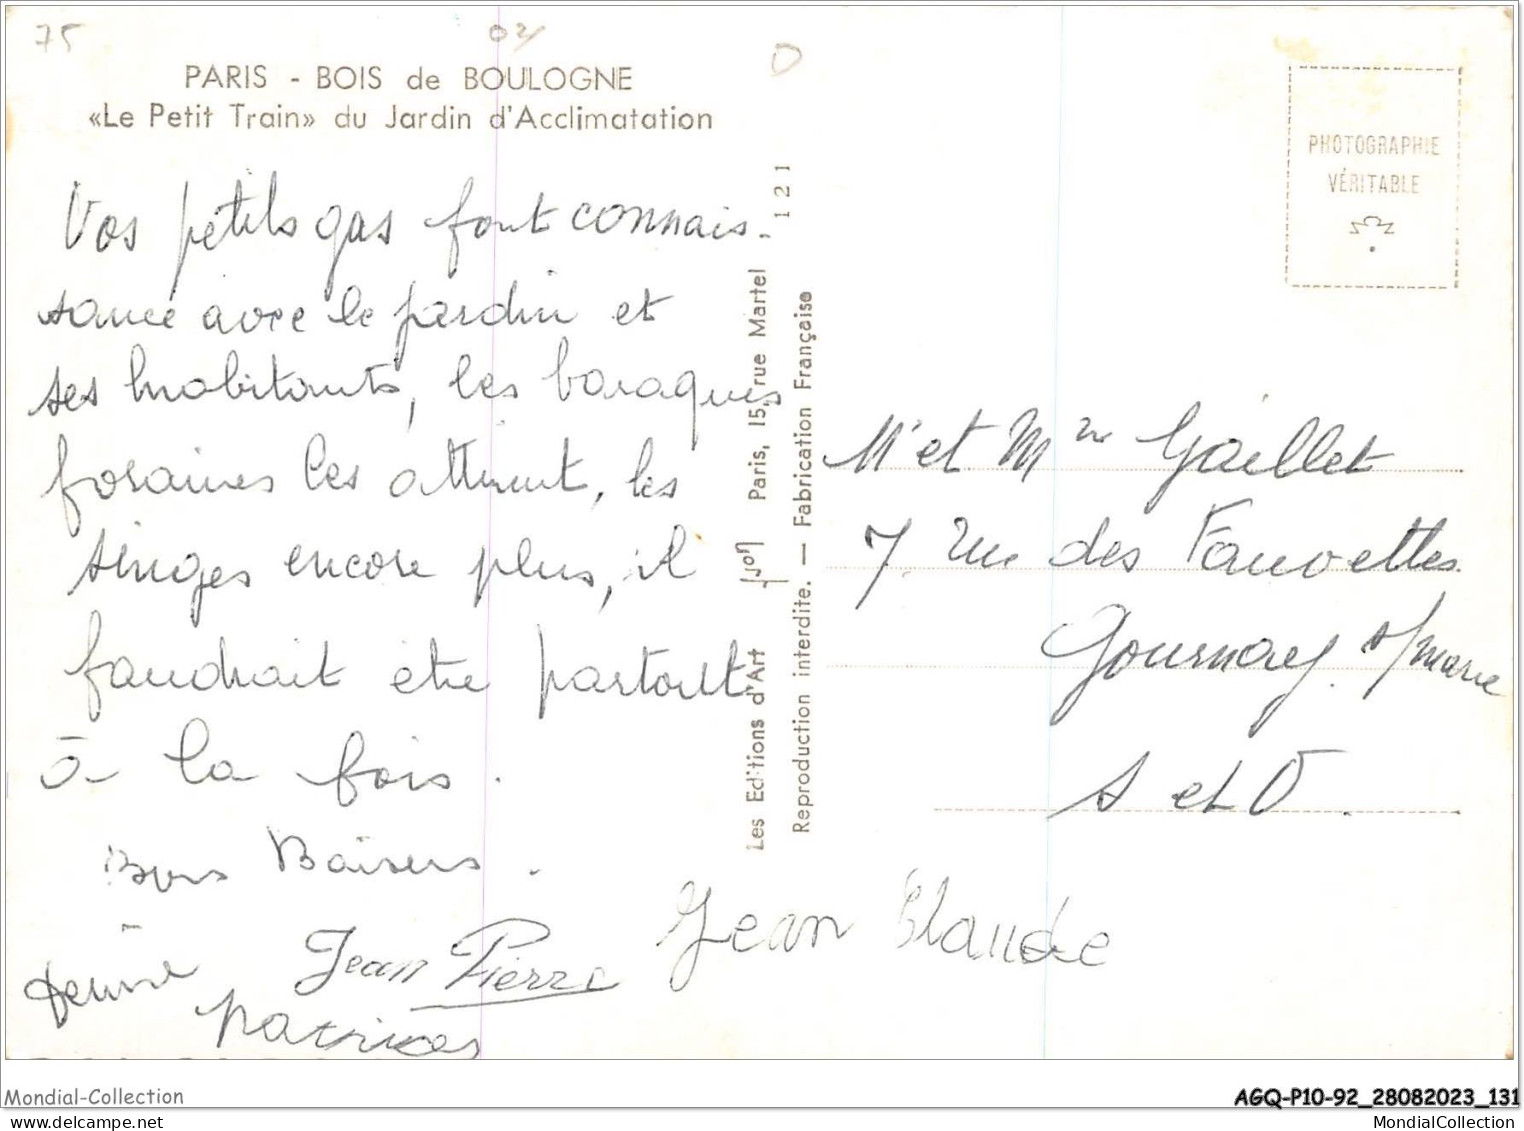 75
02
0
PARIS - BOIS de BOULOGNE
«Le Petit Train» du Jardin d'Acclimatation
Vos petits gas font connais-
sance avec le jardin et
ses habitants, les baraques
foraines les attirent, les
singes encore plus, il
faudrait être partout
à la fois.
Bons Baisers.
Denise
Jean Pierre
Jean Claude
Les Editions d'Art Yvon Paris, 15, rue Martel 121
Reproduction interdite. — Fabrication Française
PHOTOGRAPHIE
VÉRITABLE
Mr et Mme Gaillet
7. rue des Fauvettes
Gournay s/marne
S et O.
Mondial-Collection
AGQ-P10-92_28082023_131
www.delcampe.net
MondialCollection